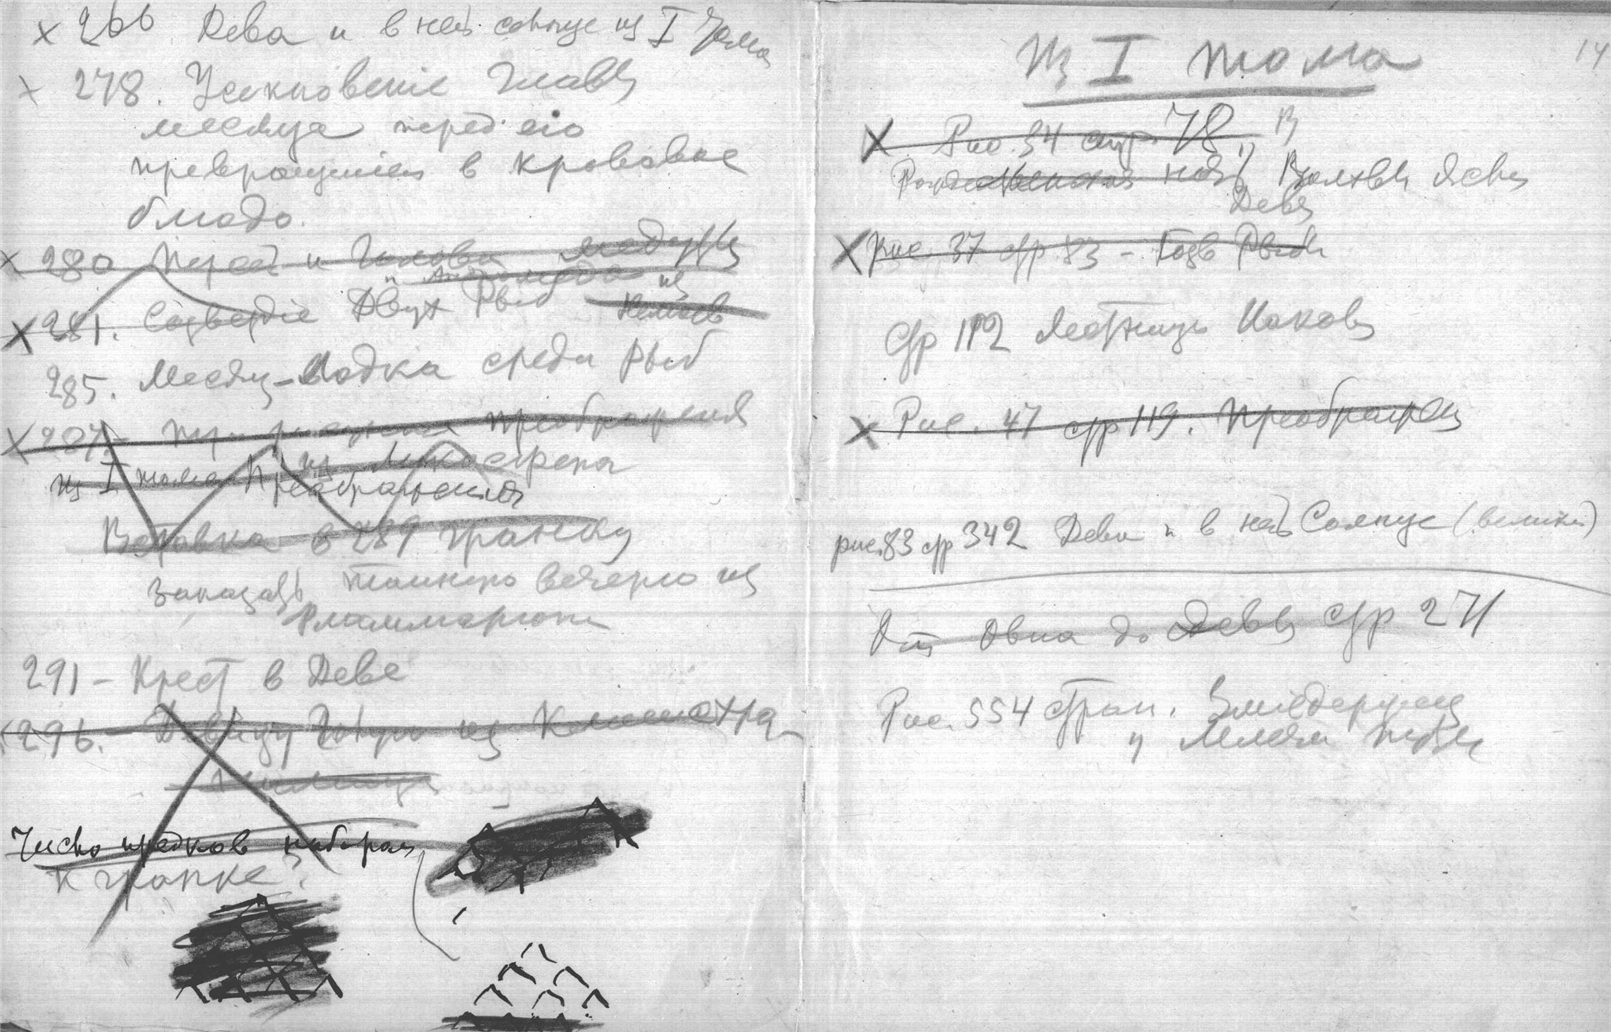 х 266 Дева и в ней солнце из I тома
х 278. Усекновеніе главы
месяца перед его
превращением в кровавое
блюдо.
х 280 Персей и Голова медузы
и Андромеда из
х 281. Созвездіе Двух Рыб
285. Месяц-Лодка среди рыб
х 287- Преображения
из I тома Преображения
Вставка в 289 гранку
Заказать тайную вечерю из
Фламмариона
291 - Крест в Деве
296. Девицу
Число предков набираем
к гранке?
14
Из I тома
х Рис. 34 стр. 78 "В
Рождественская ночь" Волхвы Ясли
Девы
х Рис. 37 стр 83 - Рыбы
стр 112 Лестница Иакова
х Рис. 47 стр 119. Преображен
рис. 83 стр 342 Дева и в ней Солнце (великий)
От Овна до Девы стр 271
Рис. 554 стран. Змиедержец
и